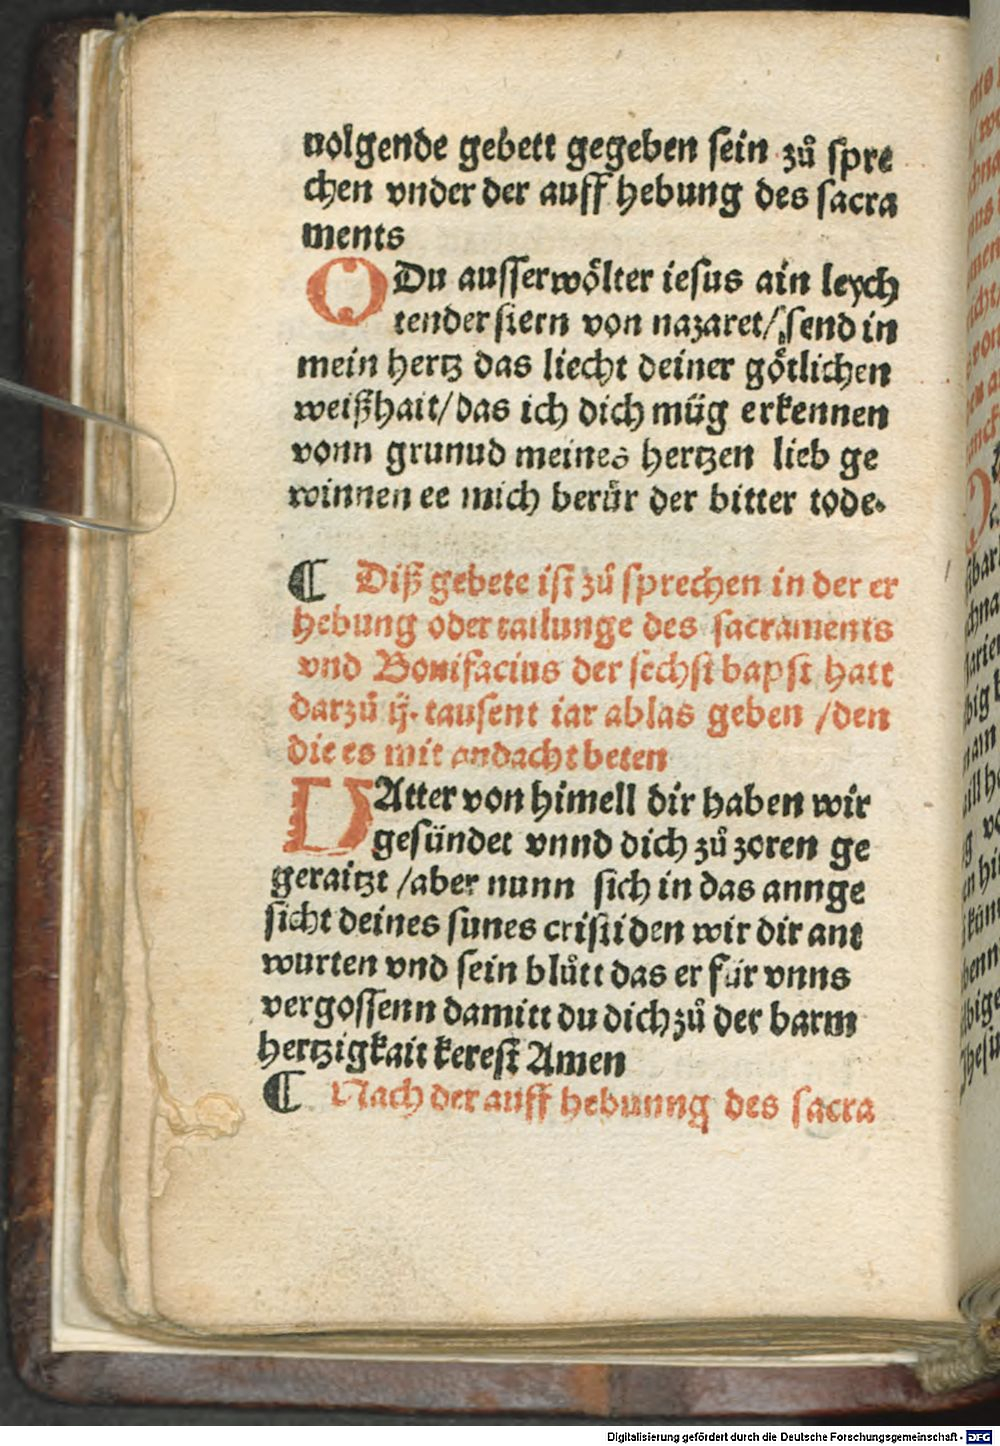 nolgende gebett gegeben sein zů spre
chen vnder der auff hebung des sacra
ments
O Du ausserwölter iesus ain leych
tender stern von nazaret/ send in
mein hertz das liecht deiner götlichen
weißhait/das ich dich müg erkennen
vonn grunud meines hertzen lieb ge
winnen ee mich berür der bitter tode.
¶ Diß gebete ist zů sprechen in der er
hebung oder tailunge des sacraments
vnd Bonifacius der sechst bapst hatt
darzů ij. tausent iar ablas geben /den
die es mit andacht beten
VAtter von himell dir haben wir
gesündet vnnd dich zů zoren ge
geraitzt /aber nunn sich in das annge
sicht deines sunes cristi den wir dir ant
wurten vnd sein blůtt das er für vnns
vergossenn damitt du dich zů der barm
hertzigkait kerest Amen
¶ Nach der auff hebunng des sacra
Digitalisierung gefördert durch die Deutsche Forschungsgemeinschaft - DFG